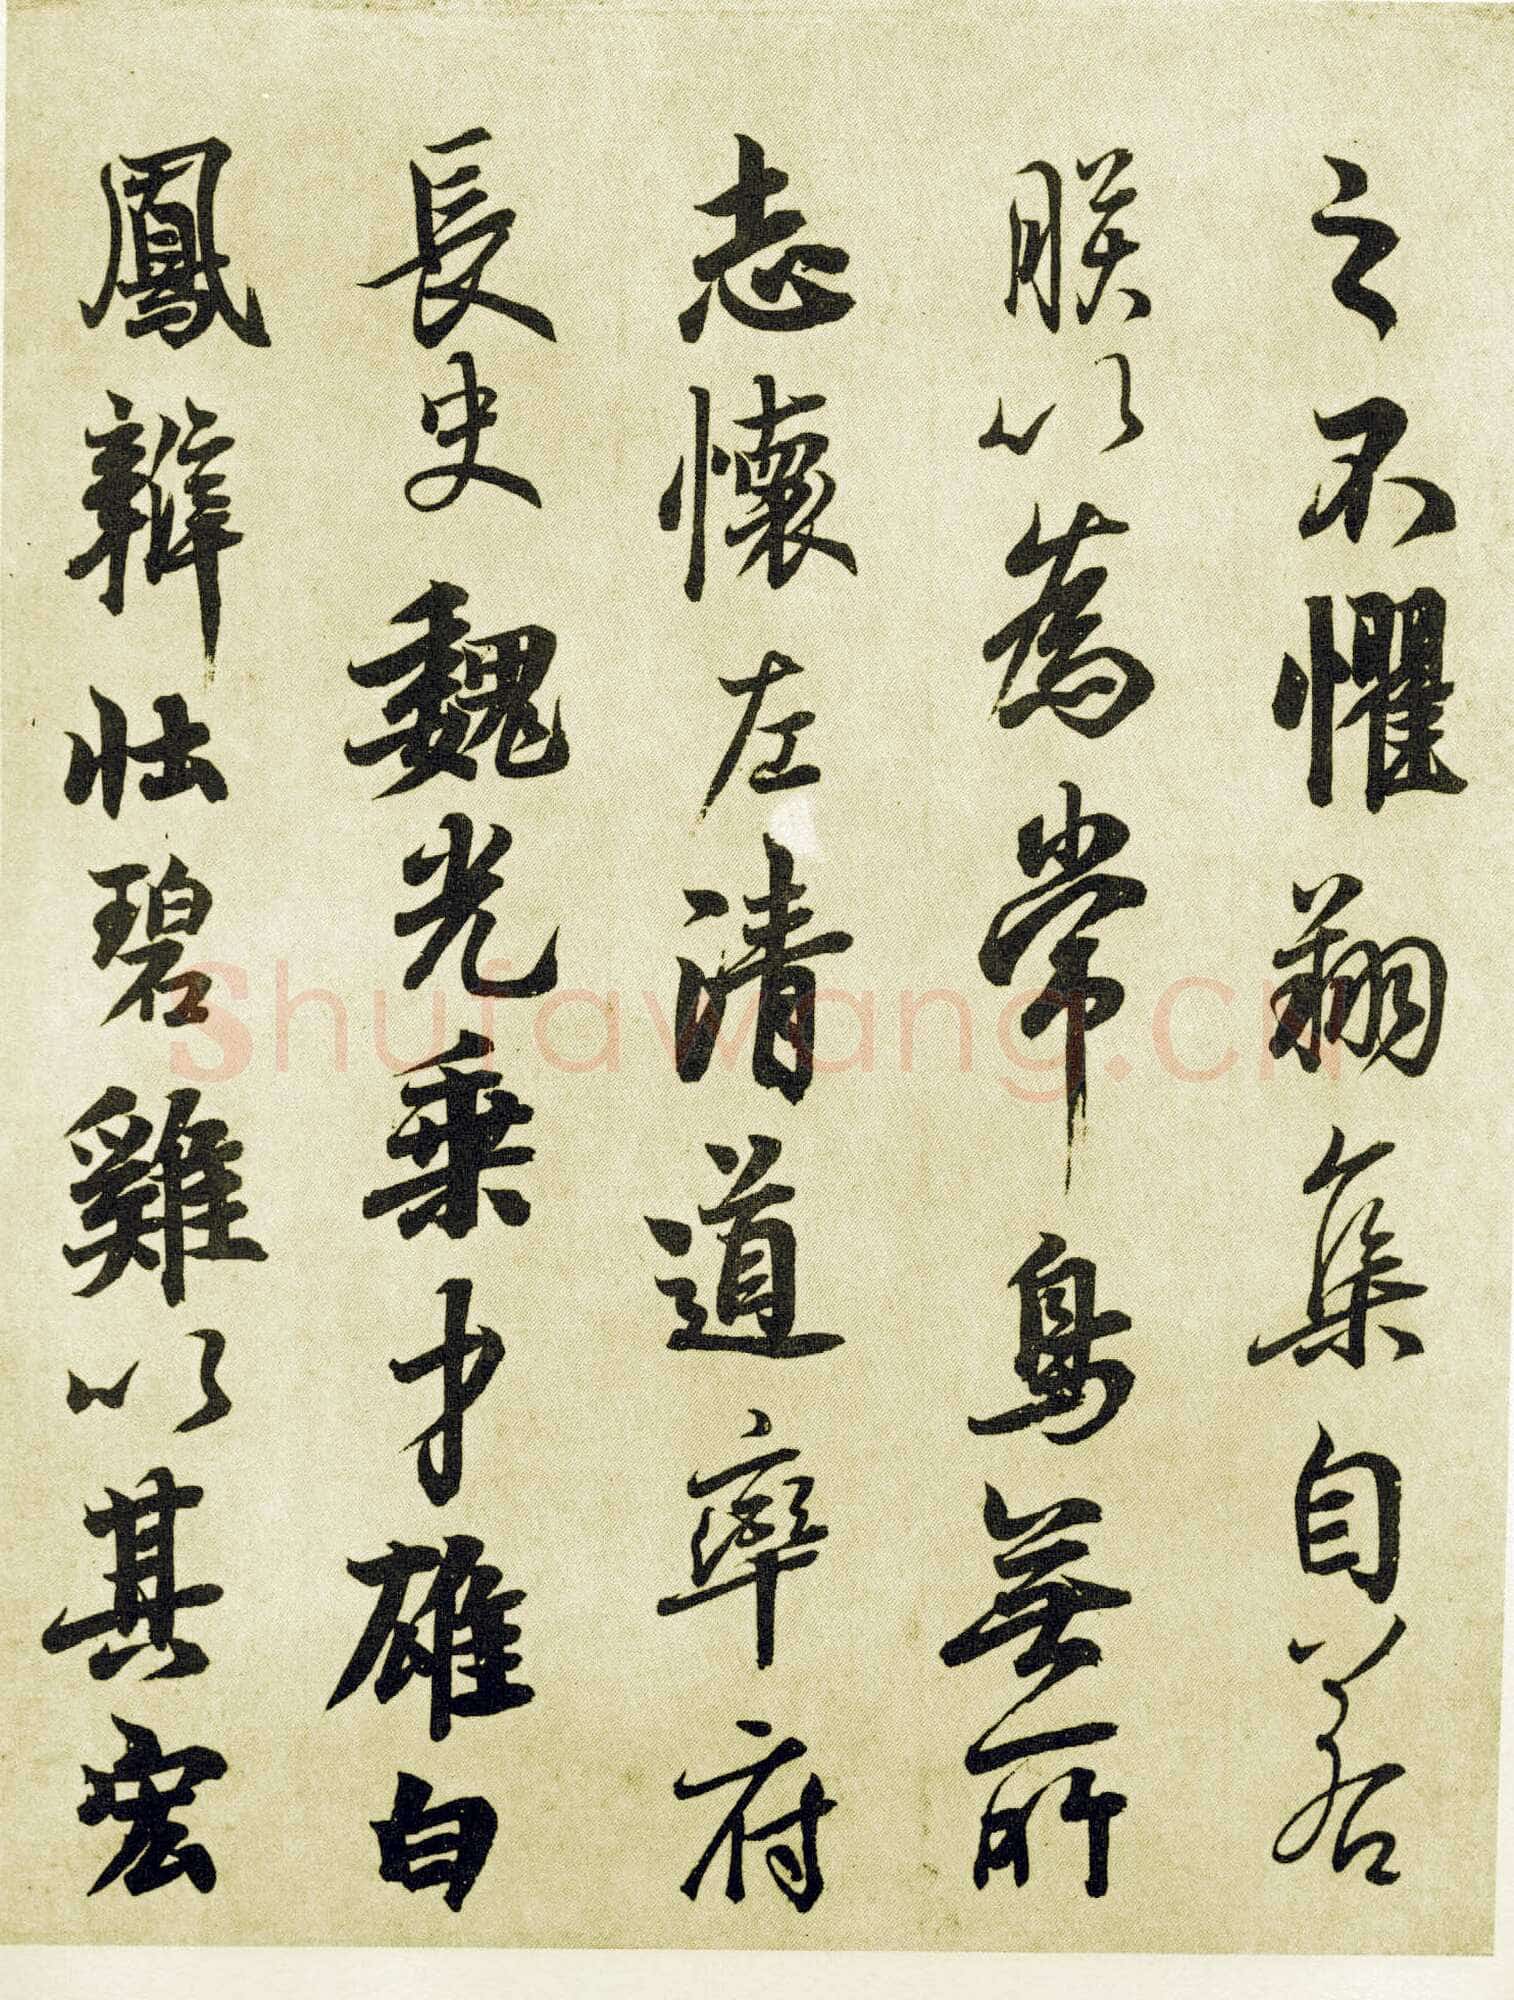 之不懼翔集自若
朕以為常鳥無所
志懷左清道率府
長史魏光乗才雄白
鳳辯壯碧雞以其宏
Shufawang.cn